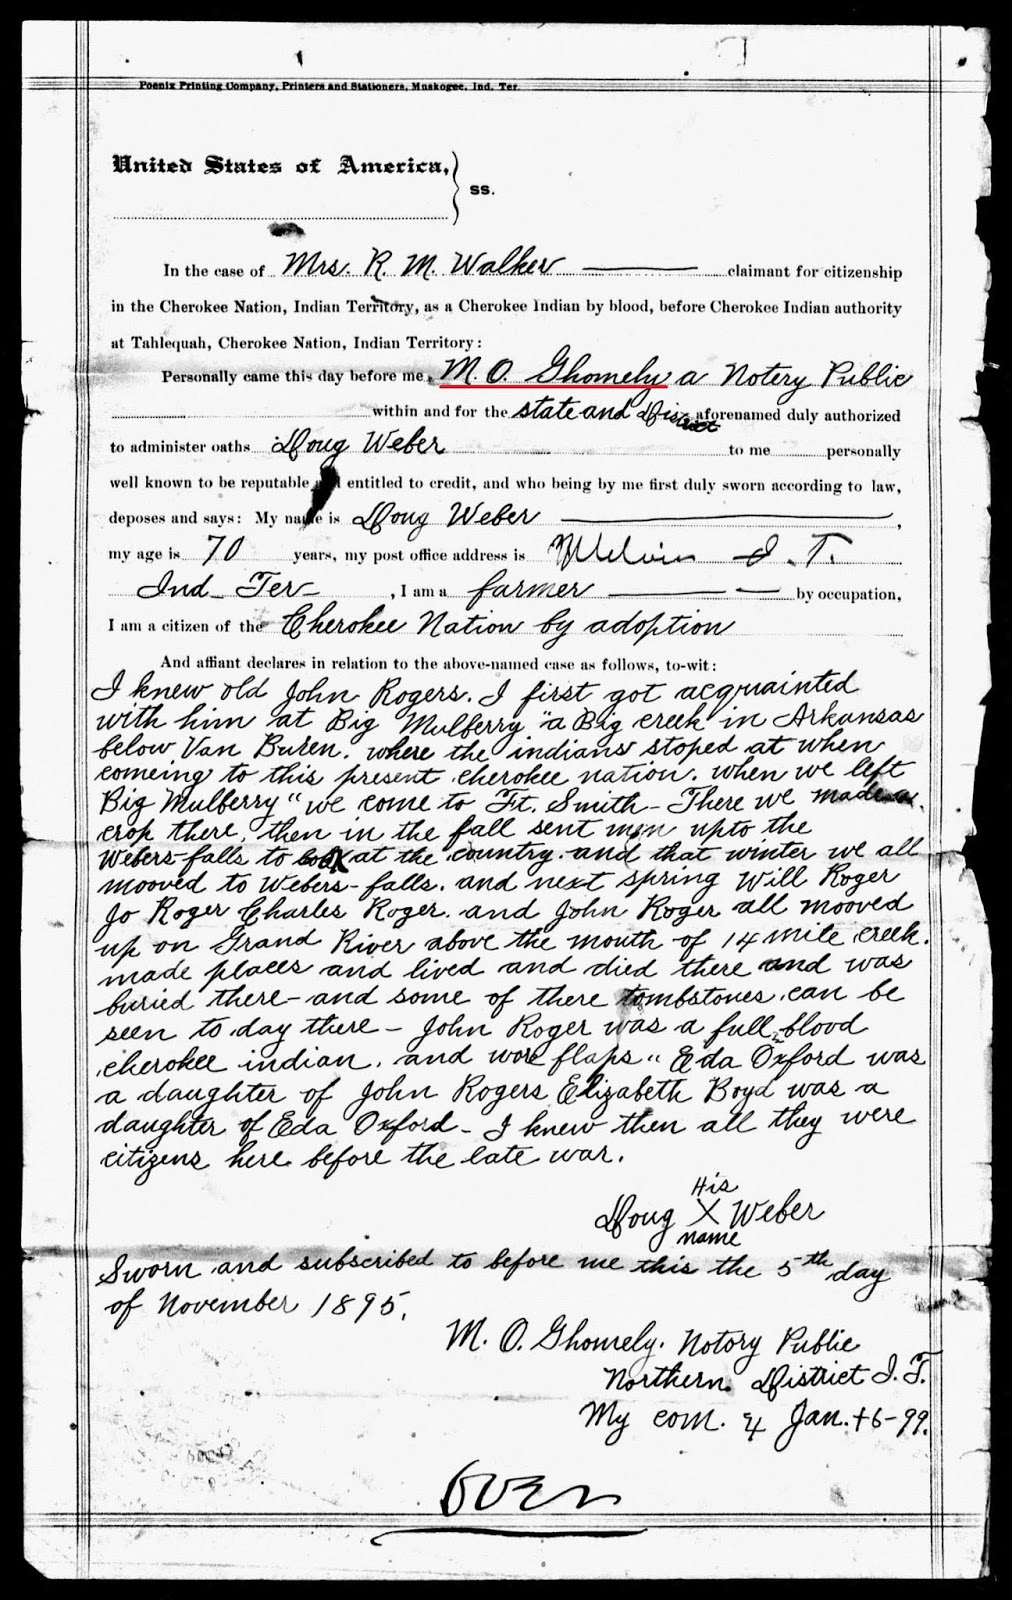 Poenix Printing Company, Printers and Stationers, Muskogee, Ind. Ter.
United States of America,
ss.
In the case of Mrs. R. M. Walker claimant for citizenship
in the Cherokee Nation, Indian Territory, as a Cherokee Indian by blood, before Cherokee Indian authority
at Tahlequah, Cherokee Nation, Indian Territory:
Personally came this day before me, M. O. Ghomely a Notery Public
within and for the state and District aforenamed duly authorized
to administer oaths Doug Weber to me personally
well known to be reputable entitled to credit, and who being by me first duly sworn according to law,
deposes and says: My name is Doug Weber,
my age is 70 years, my post office address is Melvin I. T.
Ind Ter, I am a farmer by occupation,
I am a citizen of the Cherokee Nation by adoption
And affiant declares in relation to the above-named case as follows, to-wit:
I knew old John Rogers. I first got acquainted
with him at Big Mulberry "a Big creek in Arkansas
below Van Buren. where the indians stoped at when
comeing to this present cherokee nation. when we left
Big Mulberry" we come to Ft. Smith - There we made a
crop there, then in the fall sent men upto the
Webers-falls to look at the country. and that winter we all
mooved to Webers-falls. and next spring Will Roger
Jo Roger Charles Roger. and John Roger all mooved
up on Grand River above the mouth of 14 mile creek.
made places and lived and died there and was
buried there - and some of there tombstones can be
seen to day there - John Roger was a full blood
cherokee indian. and wore flaps" Eda Oxford was
a daughter of John Rogers Elizabeth Boyd was a
daughter of Eda Oxford - I knew then all they were
citizens here before the late war.
His
Doug X Weber
name
Sworn and subscribed to before me this the 5th day
of November 1895.
M. O. Ghomely. Notory Public
Northern District I. T.
My com. Jan. 16-99.
over